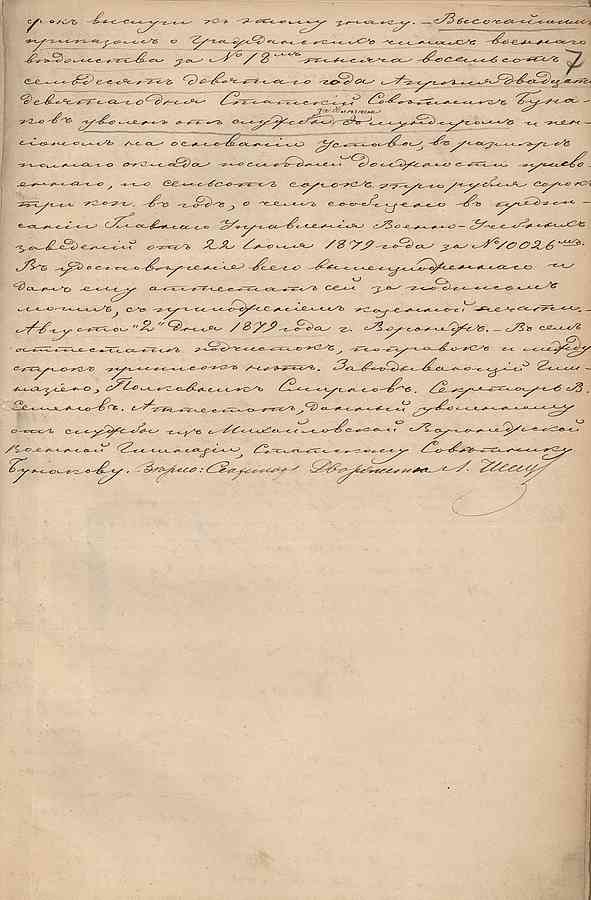 срокъ выслуги къ этому знаку. – Высочайшимъ
приказомъ о Гражданскихъ чинахъ военнаго
вѣдомства за № 18мъ тысяча восемьсотъ
7
семьдесятъ девятаго года Апрѣля двадцать
девятаго дня Статскій Совѣтникъ Буна-
ковъ уволенъ отъ службы съ мундиромъ и пен-
сіономъ на основаніи Устава, въ размѣрѣ
полнаго оклада послѣдней должности присво-
еннаго, по семьсотъ сорокъ три рубля сорокъ
три коп. въ годъ, о чемъ сообщено въ предпи-
саніи Главнаго Управленія Военно-Учебныхъ
заведеній отъ 22 Іюля 1879 года за № 10026мъ.
Въ удостовѣреніе всего вышеизложеннаго и
данъ ему аттестатъ сей за подписомъ
моимъ, съ приложеніемъ казенной печати. –
Августа "2" дня 1879 года г. Воронежъ. – Въ семъ
аттестатѣ подчистокъ, поправокъ и между
строкъ приписокъ нѣтъ. Завѣдывающій Гим-
назіею, Полковникъ Смирновъ. Секретарь В.
Семеновъ. Аттестатъ, данный уволенному
отъ службы изъ Михайловской Воронежской
Военной Гимназіи, Статскому Совѣтнику
Бунакову. Вѣрно: